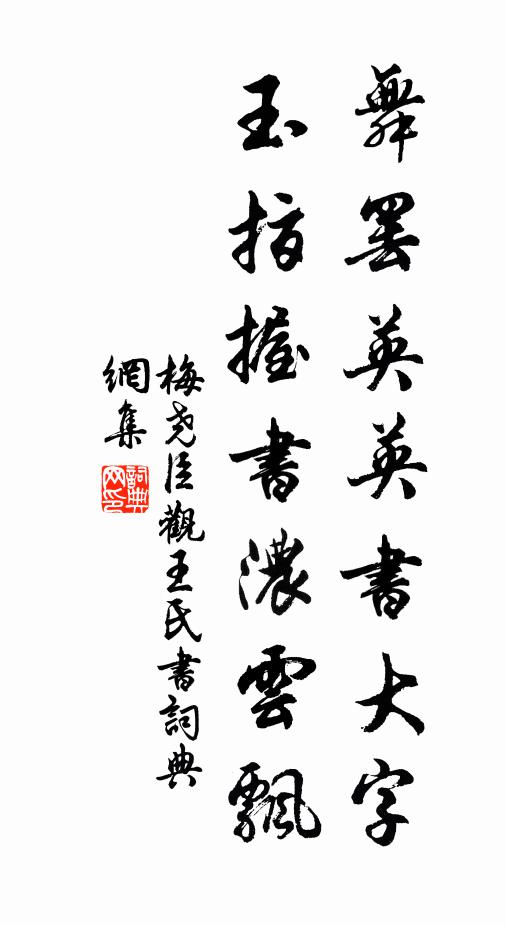 舞罷英英書大字
玉指握書濃雲飄
梅堯臣觀王氏書詞典
網集
詞典
网印